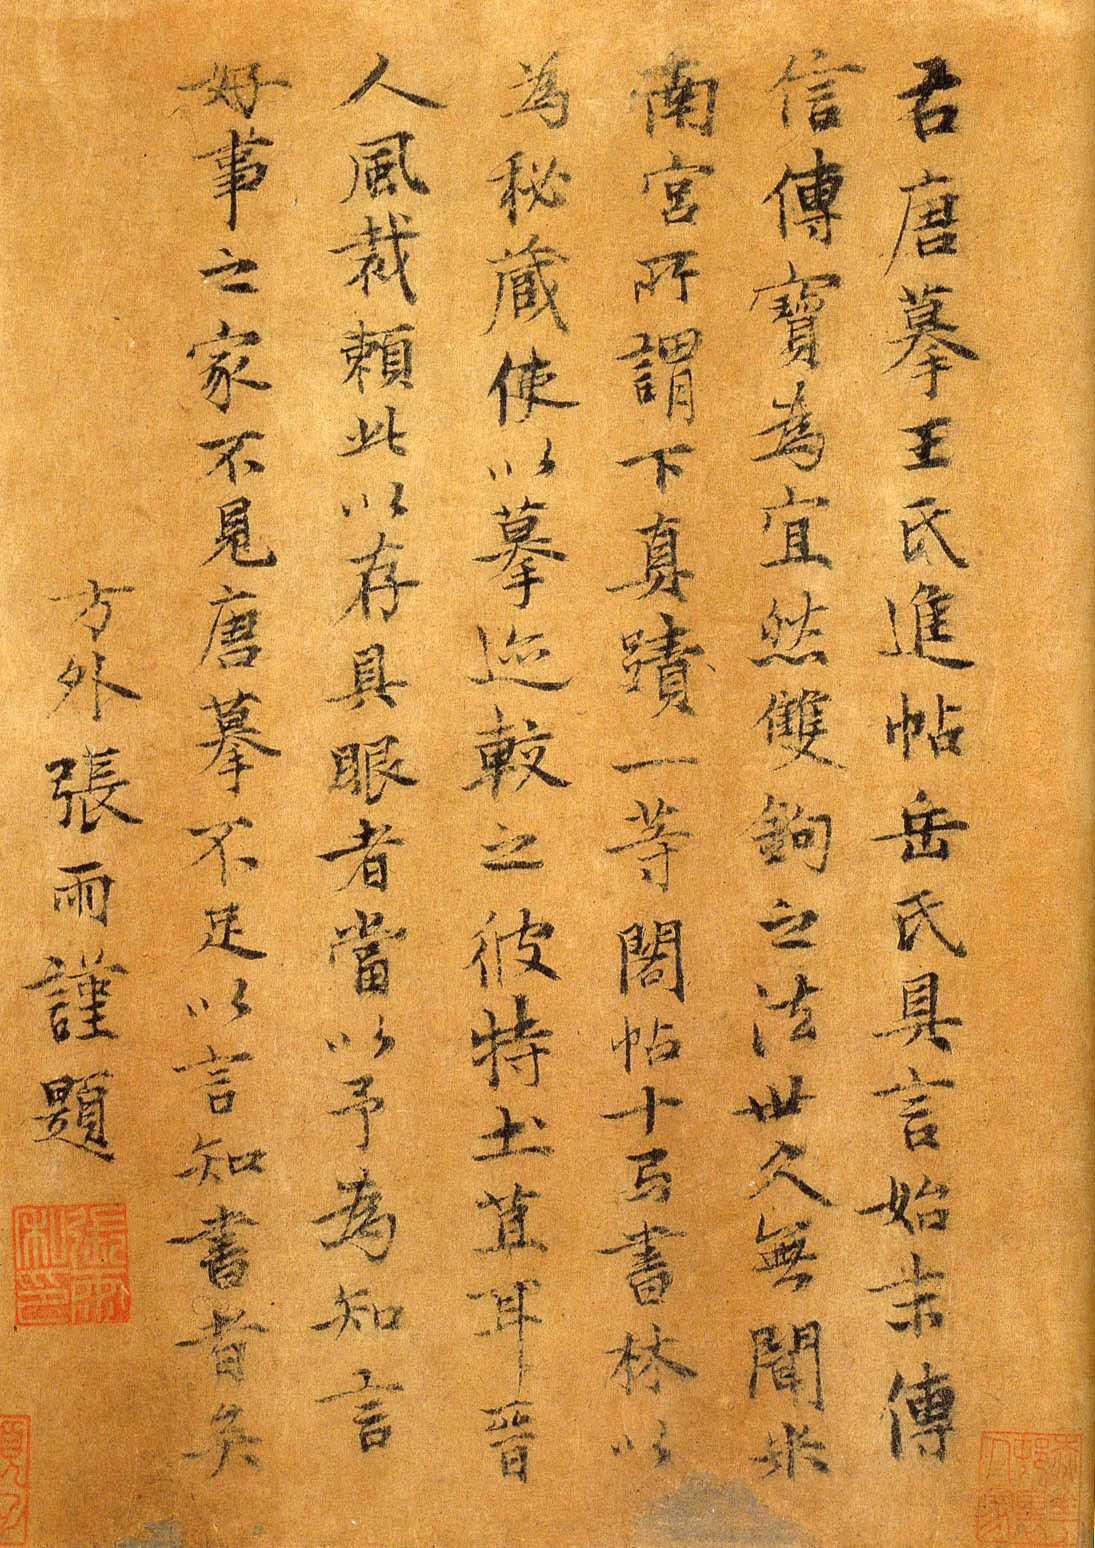 右唐摹王氏進帖岳氏具言始末傳
信傳寶為宜然雙鉤之法世久無聞米
南宮所謂下真蹟一等閣帖十㢧書林以
為秘藏使以摹迹較之彼特土苴耳晉
人風裁賴此以存具眼者當以予為知言
好事之家不見唐摹不足以言知書者矣
方外張雨謹題
張雨私印